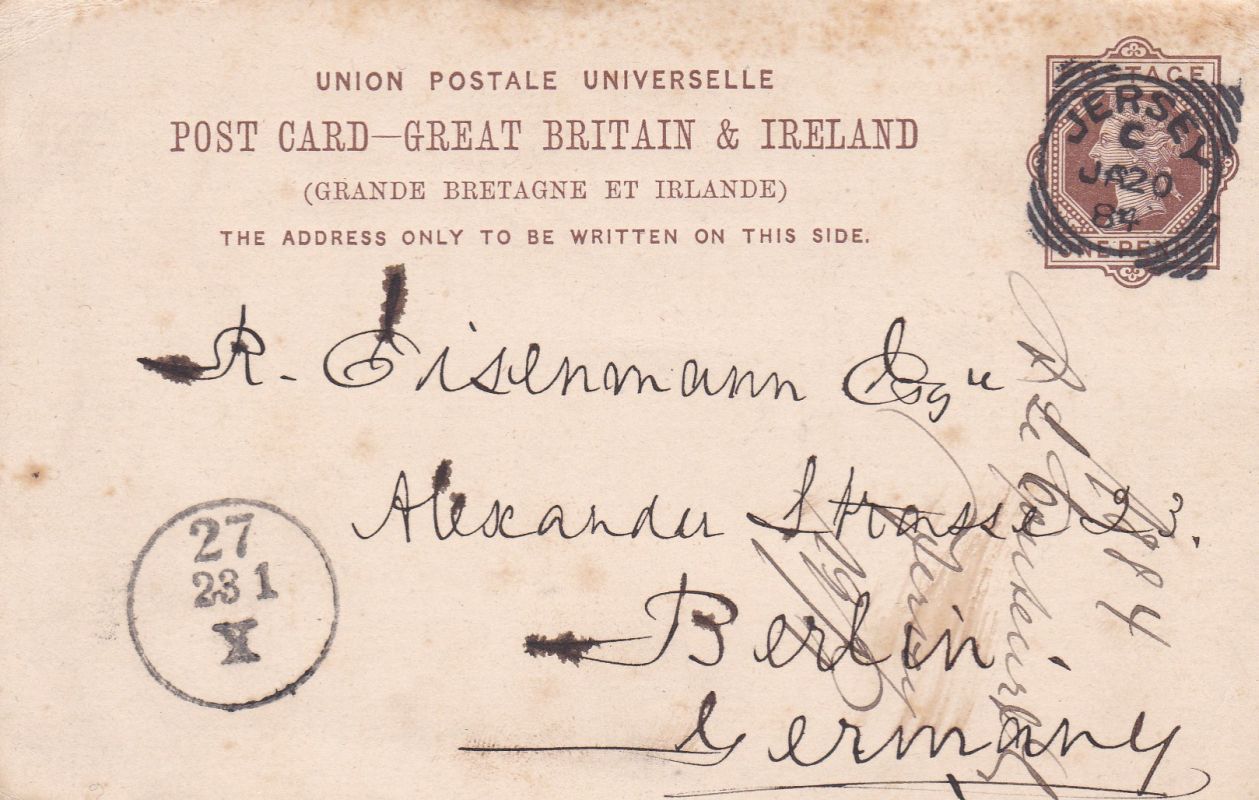 UNION POSTALE UNIVERSELLE
POST CARD—GREAT BRITAIN & IRELAND
(GRANDE BRETAGNE ET IRLANDE)
THE ADDRESS ONLY TO BE WRITTEN ON THIS SIDE.
POSTAGE
ONE PENNY
JERSEY
C
JA 20
84
R. Eisenmann Esqre
Alexander Strasse 23.
Berlin.
Germany
27
23 1
X
1884
Jersey